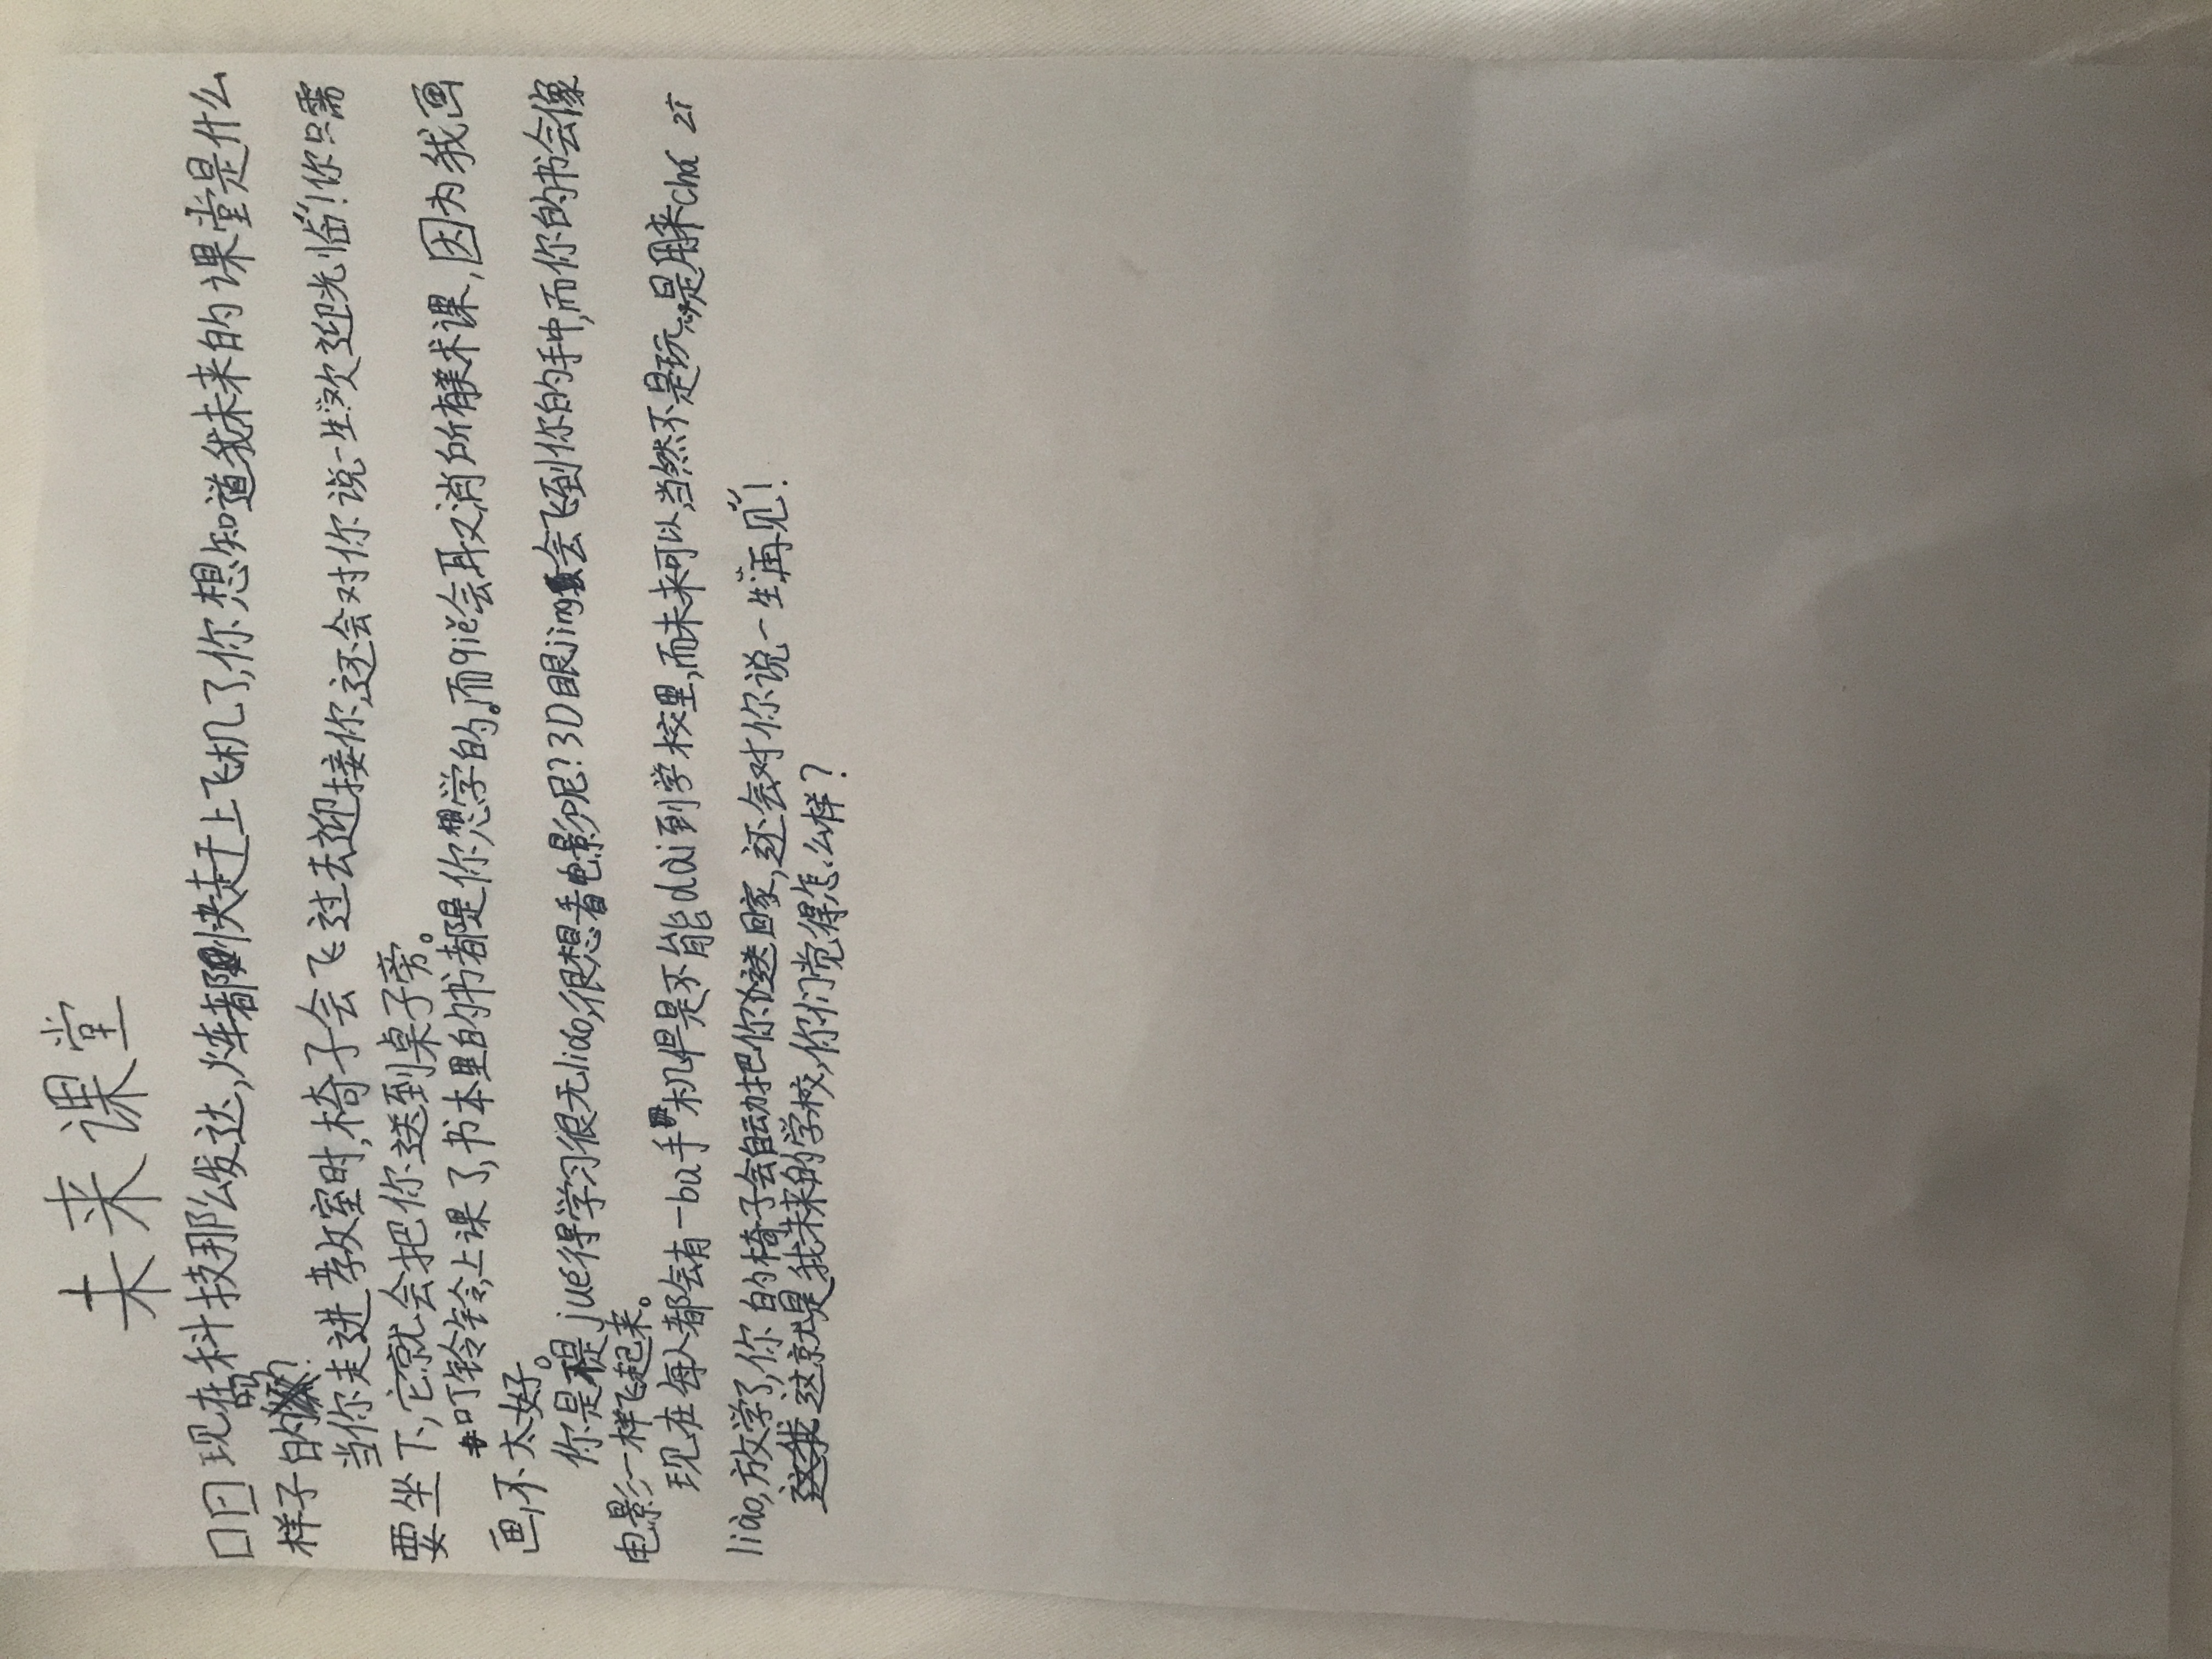 未来课堂
口口现在科技那么发达,火车都快走上飞机了,你想知道我未来的课堂是什么
样子的吗?
当你走进教室时,椅子会飞过去迎接你,还会对你说一生“欢迎光临”!你只需
要坐下,它就会把你送到桌子旁。
叮铃铃,上课了,书本里的书都是你想学的。而qiě会取消所有美术课,因为我画
画不太好。
你是不是jué得学习很无liáo,很想看电影呢?3D眼jìng会飞到你的手中,而你的书会像
电影一样飞起来。
现在每人都会有一bu手机但是不能dài到学校里,而未来可以,当然不是玩,是用来chá zī
liào,放学了,你的椅子会自动把你送回家,还会对你说一生“再见”!
这就是我未来的学校,你们觉得怎么样?